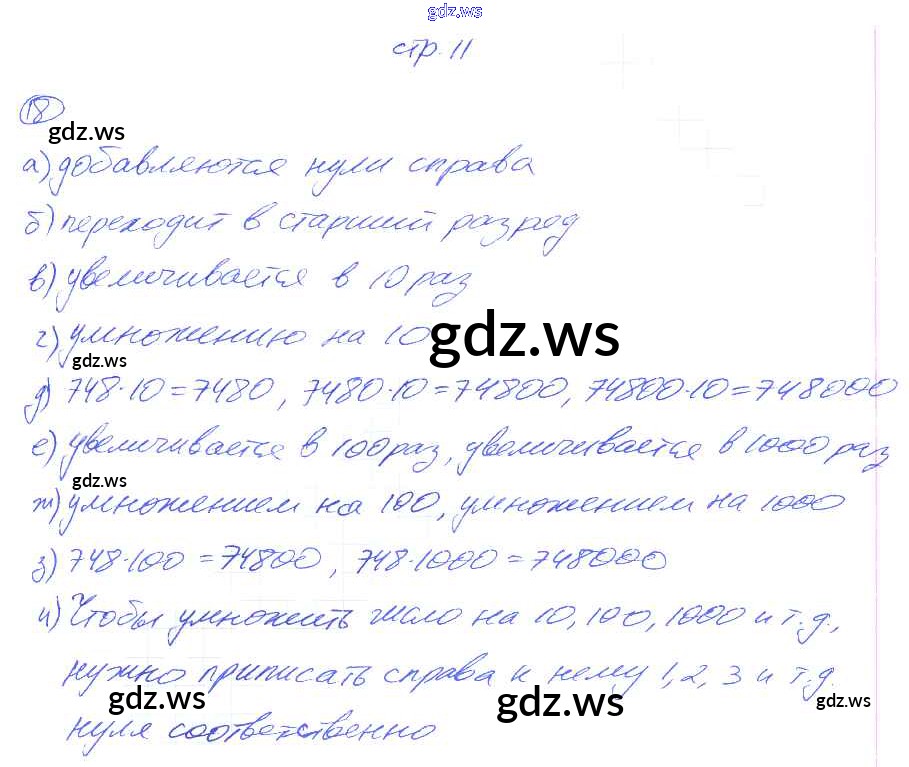 gdz.ws
стр. 11
18
gdz.ws
а) добавляются нули справа
б) переходит в старший разряд
в) увеличивается в 10 раз
г) умножению на 10
gdz.ws
gdz.ws
д) 748·10=7480, 7480·10=74800, 74800·10=748000
е) увеличивается в 100 раз, увеличивается в 1000 раз
gdz.ws
ж) умножением на 100, умножением на 1000
з) 748·100=74800, 748·1000=748000
и) Чтобы умножить число на 10, 100, 1000 и т.д.,
нужно приписать справа к нему 1, 2, 3 и т.д.
gdz.ws gdz.ws gdz.ws
нуля соответственно